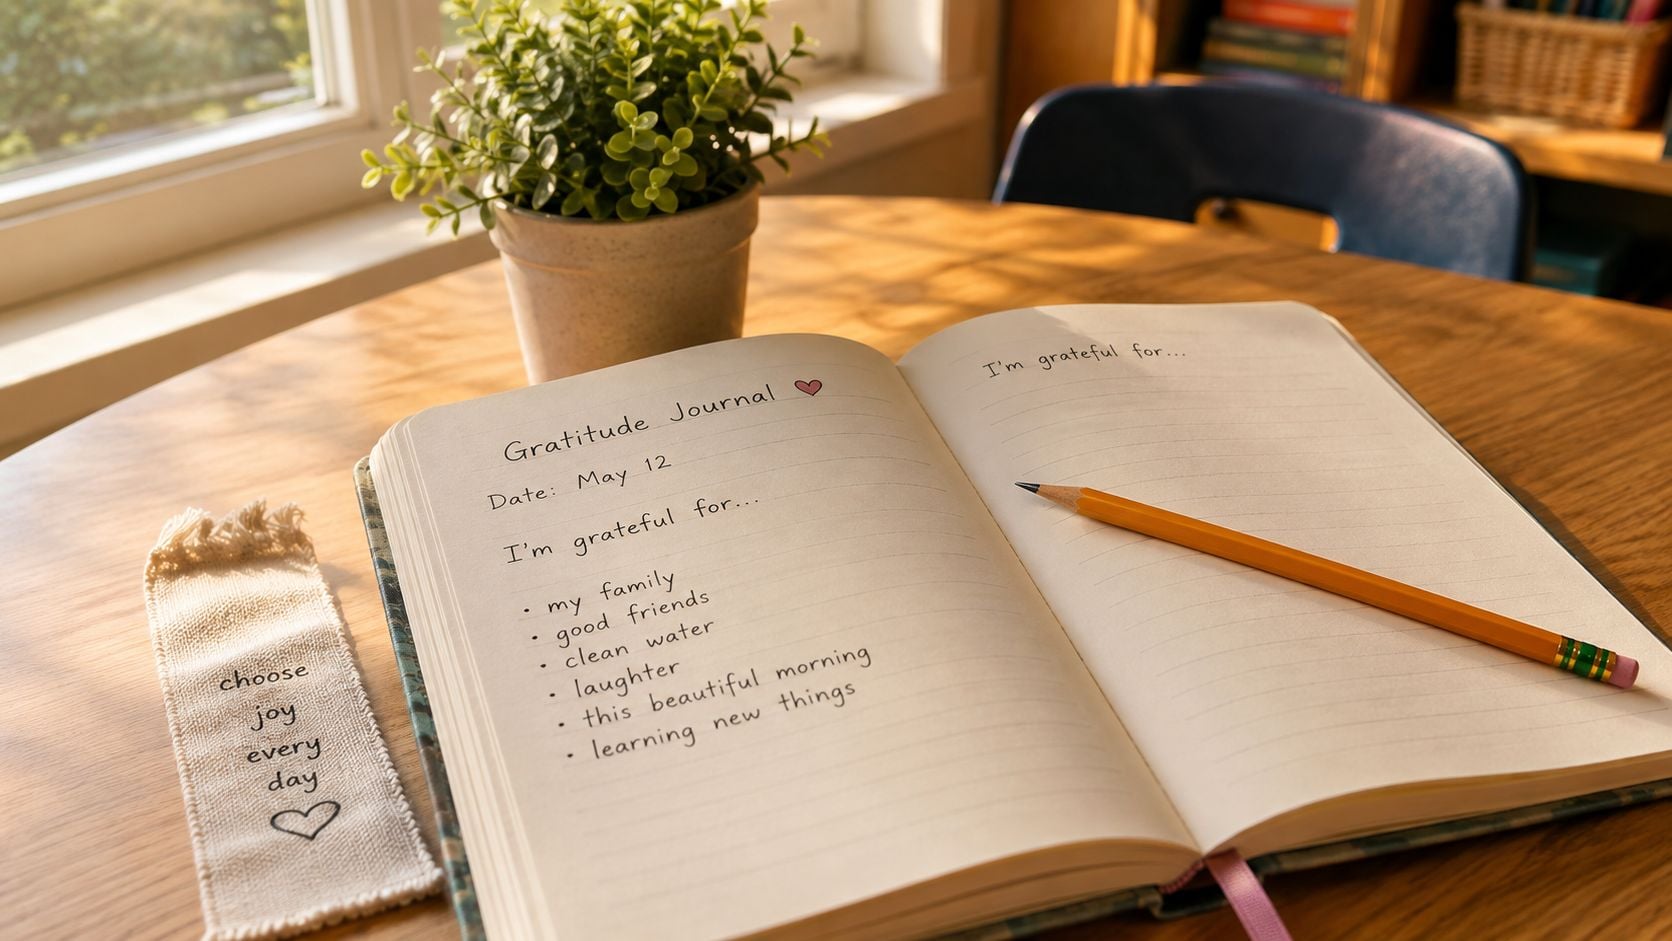 Gratitude Journal
Date: May 12
I'm grateful for...
• my family
• good friends
• clean water
• laughter
• this beautiful morning
• learning new things
I'm grateful for...
choose
joy
every
day